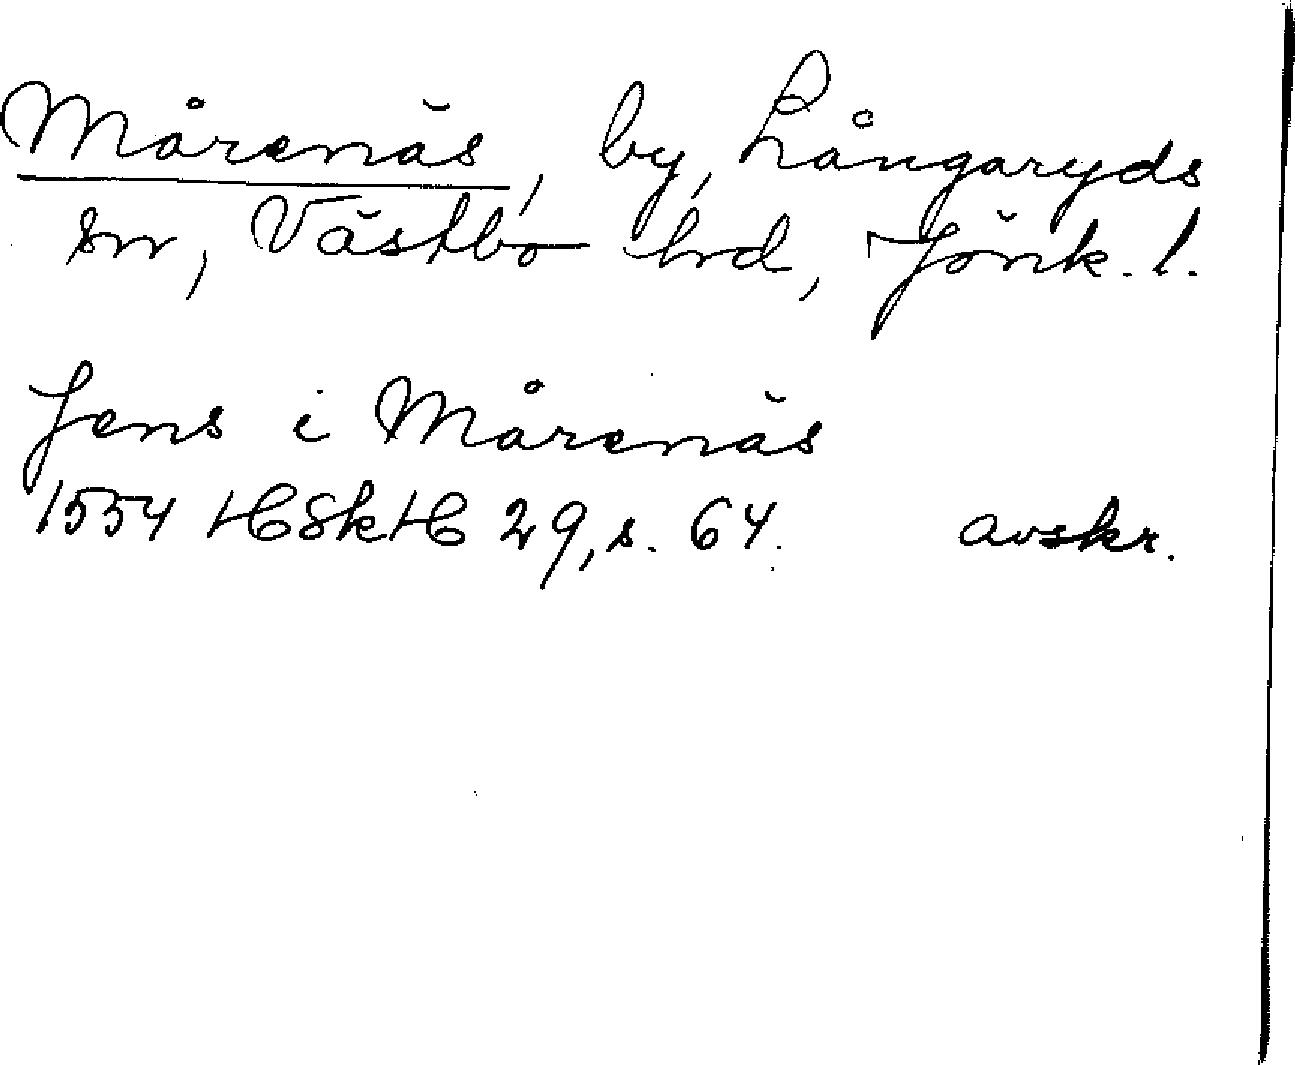 Mårenäs, by, Långaryds
sn, Västbo hrd, Jönk. l.
Jens i Mårenäs
1554 HSkH 29, s. 64. avskr.